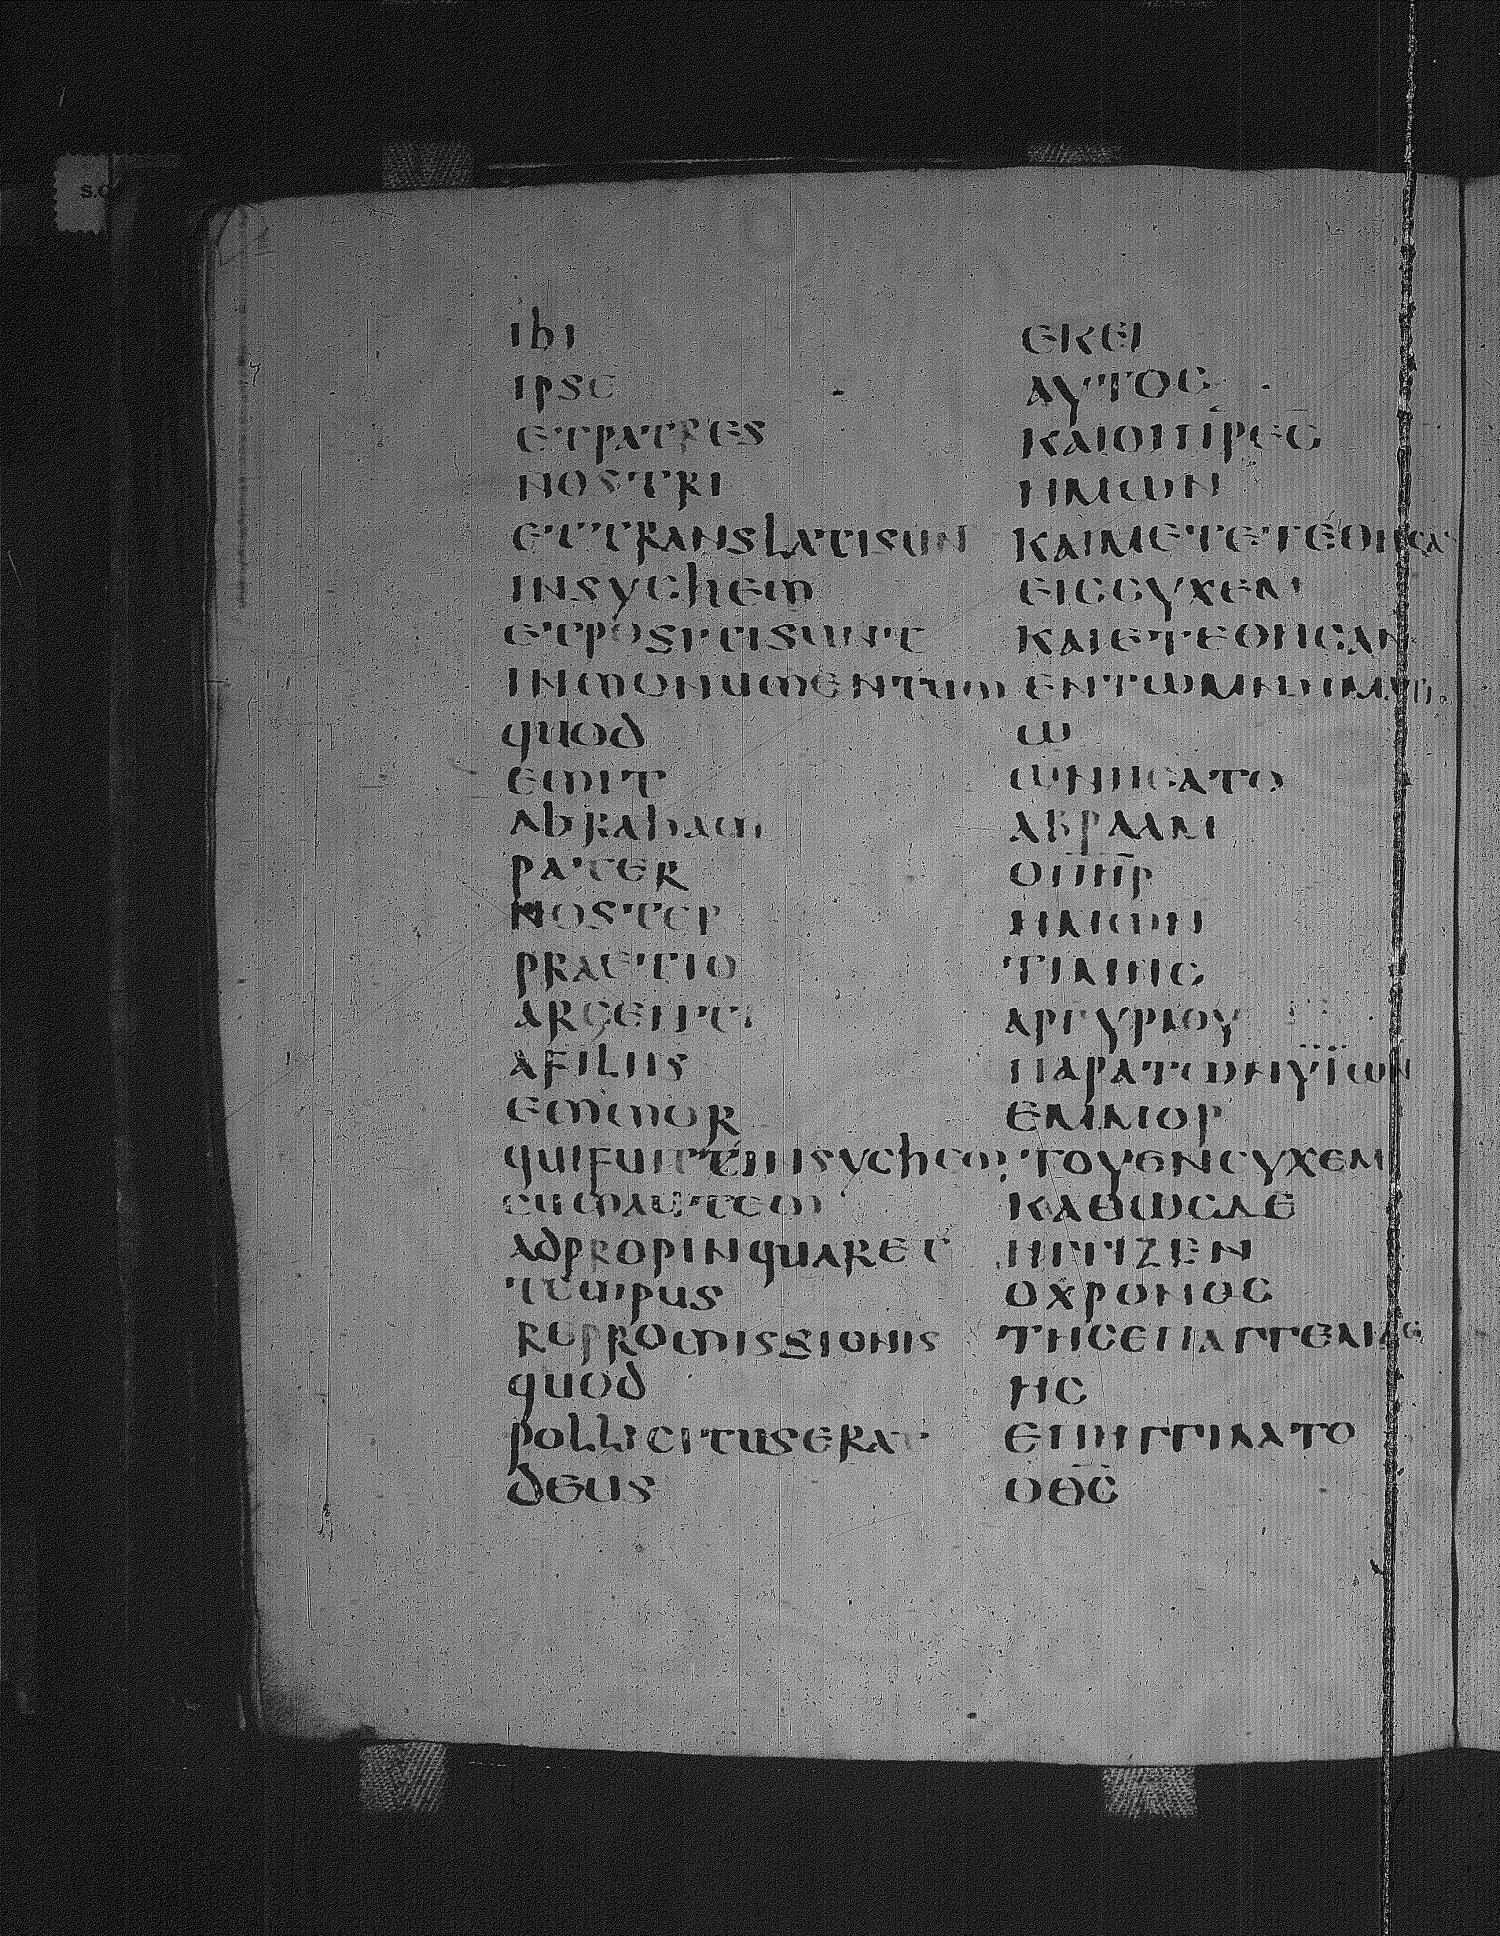 ibi
ipse
etpatres
nostri
ettranslatisun
insychem
etpositisunt
inmonumentum
quod
emit
abraham
pater
noster
praetio
argenti
afiliis
emmor
quifuitinsychem
cumautem
adpropinquaret
tempus
repromissionis
quod
pollicituserat
deus
ΕΚΕΙ
ΑΥΤΟϹ
ΚΑΙΟΙΠ̅Ρ̅Ε̅Ϲ̅
ΗΜΩΝ
ΚΑΙΜΕΤΕΤΕΘΗϹΑ
ΕΙϹϹΥΧΕΜ
ΚΑΙΕΤΕΘΗϹΑΝ
ΕΝΤΩΜΝΗΜΑΤΙ
Ω
ΩΝΗϹΑΤΟ
ΑΒΡΑΑΜ
ΟΠ̅Η̅Ρ̅
ΗΜΩΝ
ΤΙΜΗϹ
ΑΡΓΥΡΙΟΥ
ΠΑΡΑΤΩΝΫΪΩΝ
ΕΜΜΟΡ
ΤΟΥΕΝϹΥΧΕΜ
ΚΑΘΩϹΔΕ
ΗΓΓΙΖΕΝ
ΟΧΡΟΝΟϹ
ΤΗϹΕΠΑΓΓΕΛΙΑϹ
ΗϹ
ΕΠΗΓΓΙΛΑΤΟ
ΟΘ̅Ϲ̅